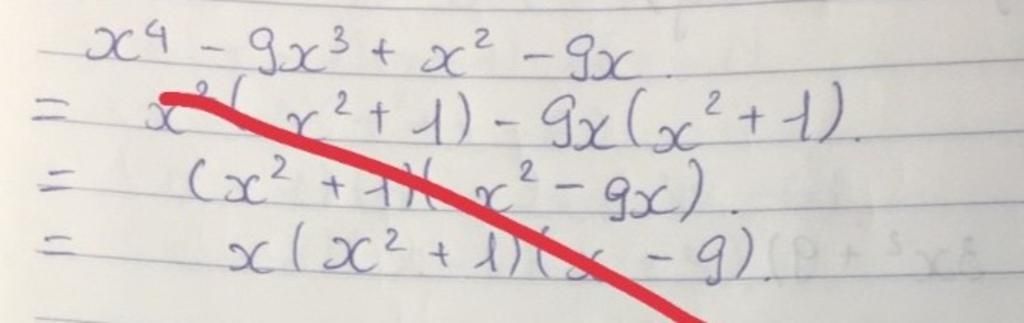 x⁴ - 9x³ + x² - 9x.
= x²(x² + 1) - 9x(x² + 1).
= (x² + 1)(x² - 9x).
= x(x² + 1)(x - 9).